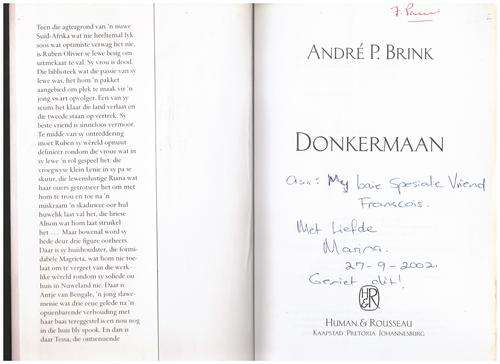 Teen die agtergrond van 'n nuwe
Suid-Afrika wat nie heeltemal lyk
soos wat optimiste verwag het nie,
is Ruben Olivier se lewe besig om
uitmekaar te val. Sy vrou is dood.
Die biblioteek wat die passie van sy
lewe was, het hom 'n pakket
aangebied om plek te maak vir 'n
jong swart opvolger. Een van sy
seuns het klaar die land verlaat en
die tweede staan op vertrek. Sy
beste vriend is sinneloos vermoor.
Te midde van sy ontreddering
moet Ruben sy wêreld opnuut
definieer rondom die vroue wat in
sy lewe 'n rol gespeel het: die
vroegwyse klein Lenie in sy pa se
skuur, die lewenslustige Riana wat
haar ouers getrotseer het om met
hom te trou en toe na 'n
miskraam 'n skaduwee oor hul
huwelik laat val het, die briese
Alison wat hom laat struikel
het ... Maar bowenal word sy
hede deur drie figure oorheers.
Daar is sy huishoudster, die formi-
dabele Magrieta, wat hom nie toe-
laat om te vergeet van die werk-
like wêreld rondom sy soliede ou
huis in Nuweland nie. Daar is
Antje van Bengale, 'n jong slawe-
meisie wat drie eeue gelede na 'n
opienbarende verhouding met
haar baas tereggestel is en nou nog
in die huis bly spook. En dan is
daar Tessa, die ontsettende
ANDRÉ P. BRINK
DONKERMAAN
Aan: My baie Spesiale Vriend
Franscois.
Met Liefde
Marina.
27-9-2002.
Geniet dit!
H&R
HUMAN & ROUSSEAU
KAAPSTAD PRETORIA JOHANNESBURG